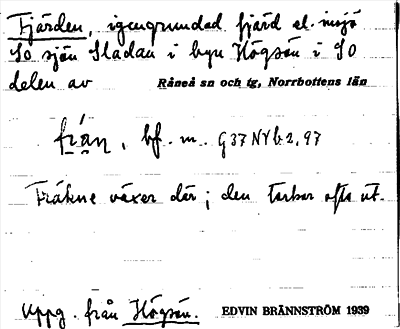 Fjärden, igengrundad fjärd el. insjö
So sjön Sladan i byn Högsön i SO
delen av Råneå sn och tg, Norrbottens län
fräṇ, bf. m. G37NVb2,97
Fräkne växer där; den torkar ofta ut.
Uppg. från Högsön. EDVIN BRÄNNSTRÖM 1939